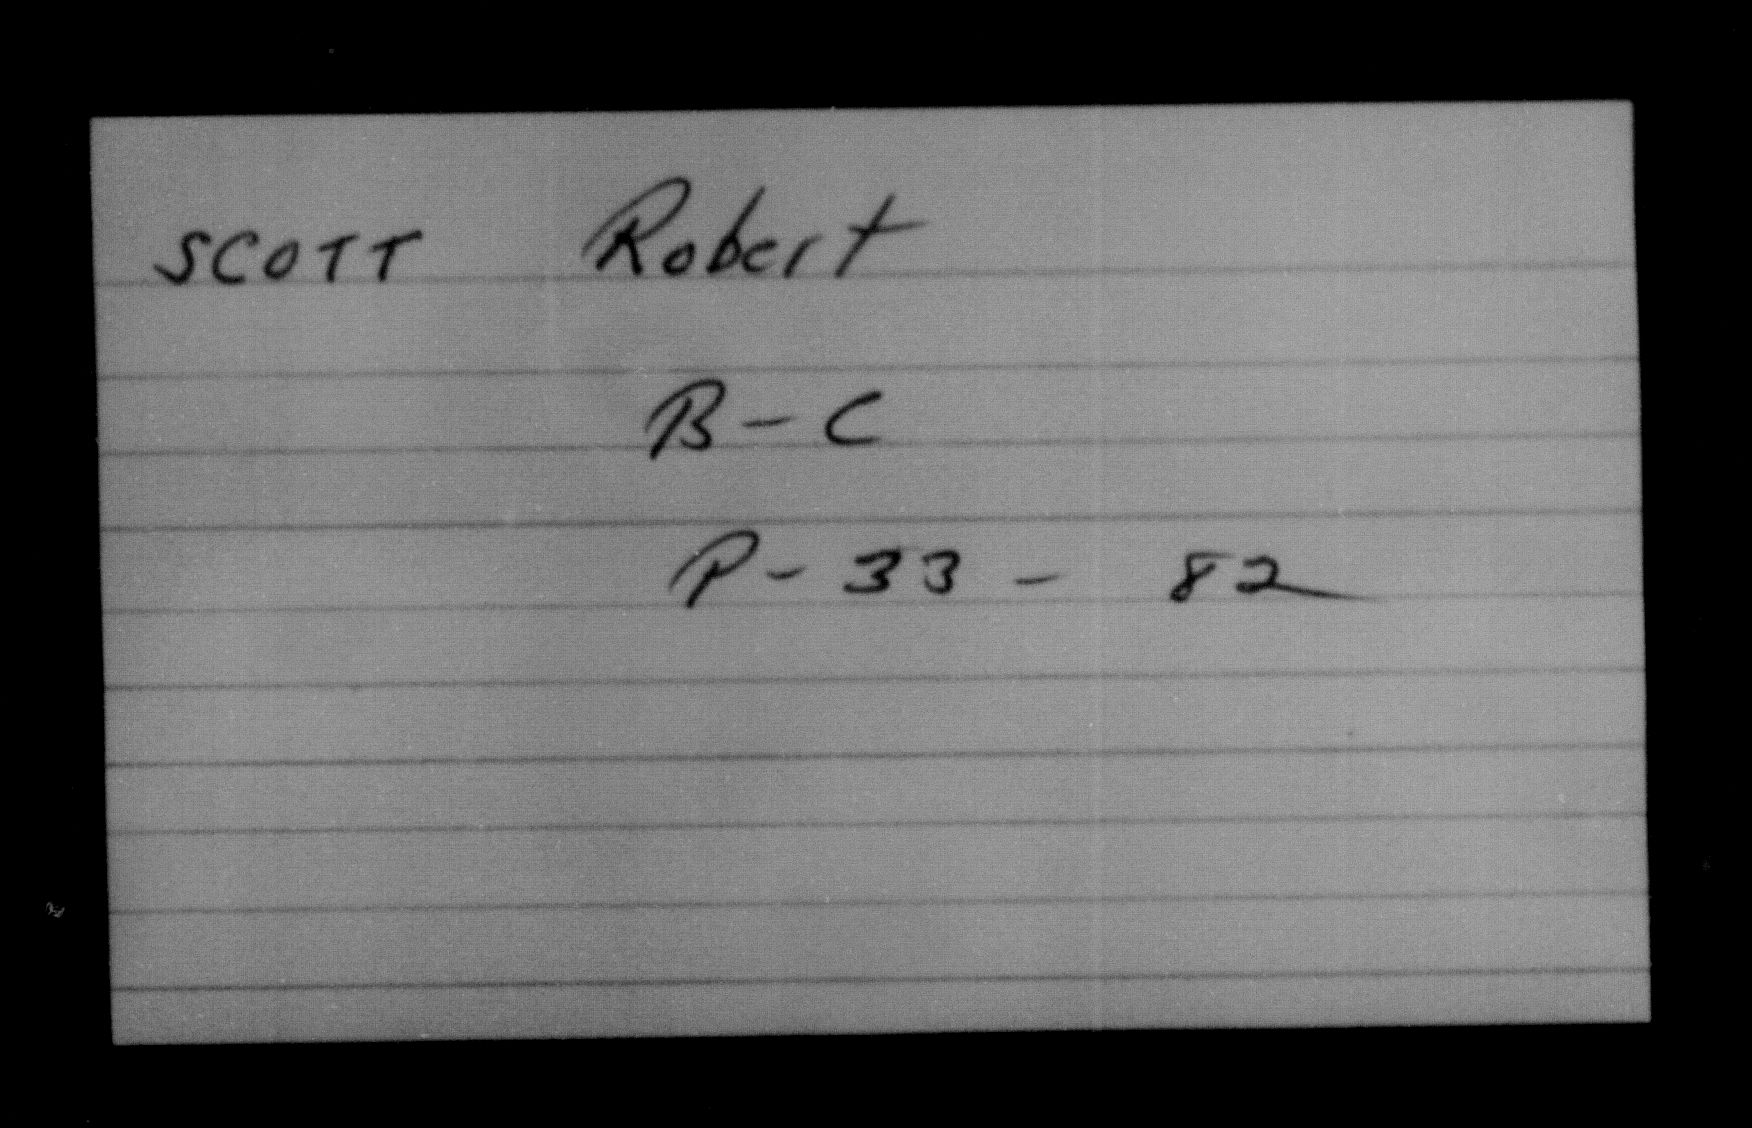 SCOTT Robert
B - C
P - 33 - 82